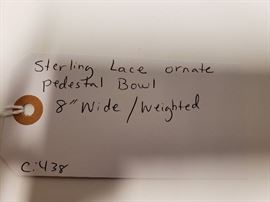 Sterling Lace ornate
pedestal Bowl
8" Wide / Weighted
C:438